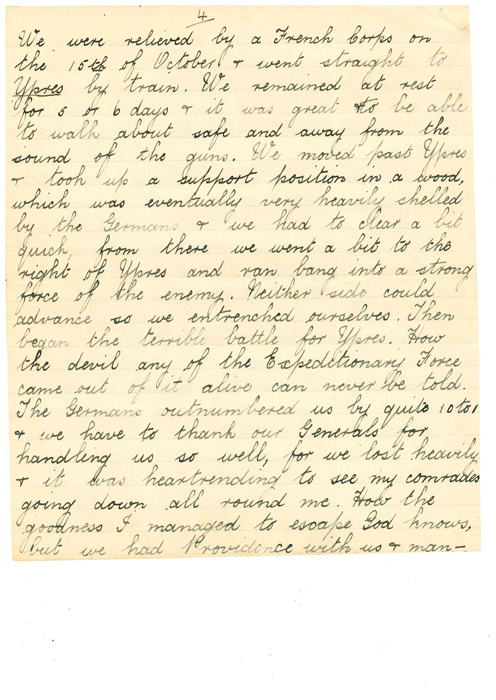 4
We were relieved by a French Corps on
the 15th of October & went straight to
Ypres by train. We remained at rest
for 5 or 6 days & it was great to be able
to walk about safe and away from the
sound of the guns. We moved past Ypres
& took up a support position in a wood,
which was eventually very heavily shelled
by the Germans & we had to clear a bit
quick, from there we went a bit to the
right of Ypres and ran bang into a strong
force of the enemy. Neither side could
advance so we entrenched ourselves. Then
began the terrible battle for Ypres. How
the devil any of the Expeditionary Force
came out of it alive can never be told.
The Germans outnumbered us by quite 10 to 1
& we have to thank our Generals for
handling us so well, for we lost heavily
& it was heartrending to see my comrades
going down all round me. How the
goodness I managed to escape God knows,
but we had Providence with us & man–